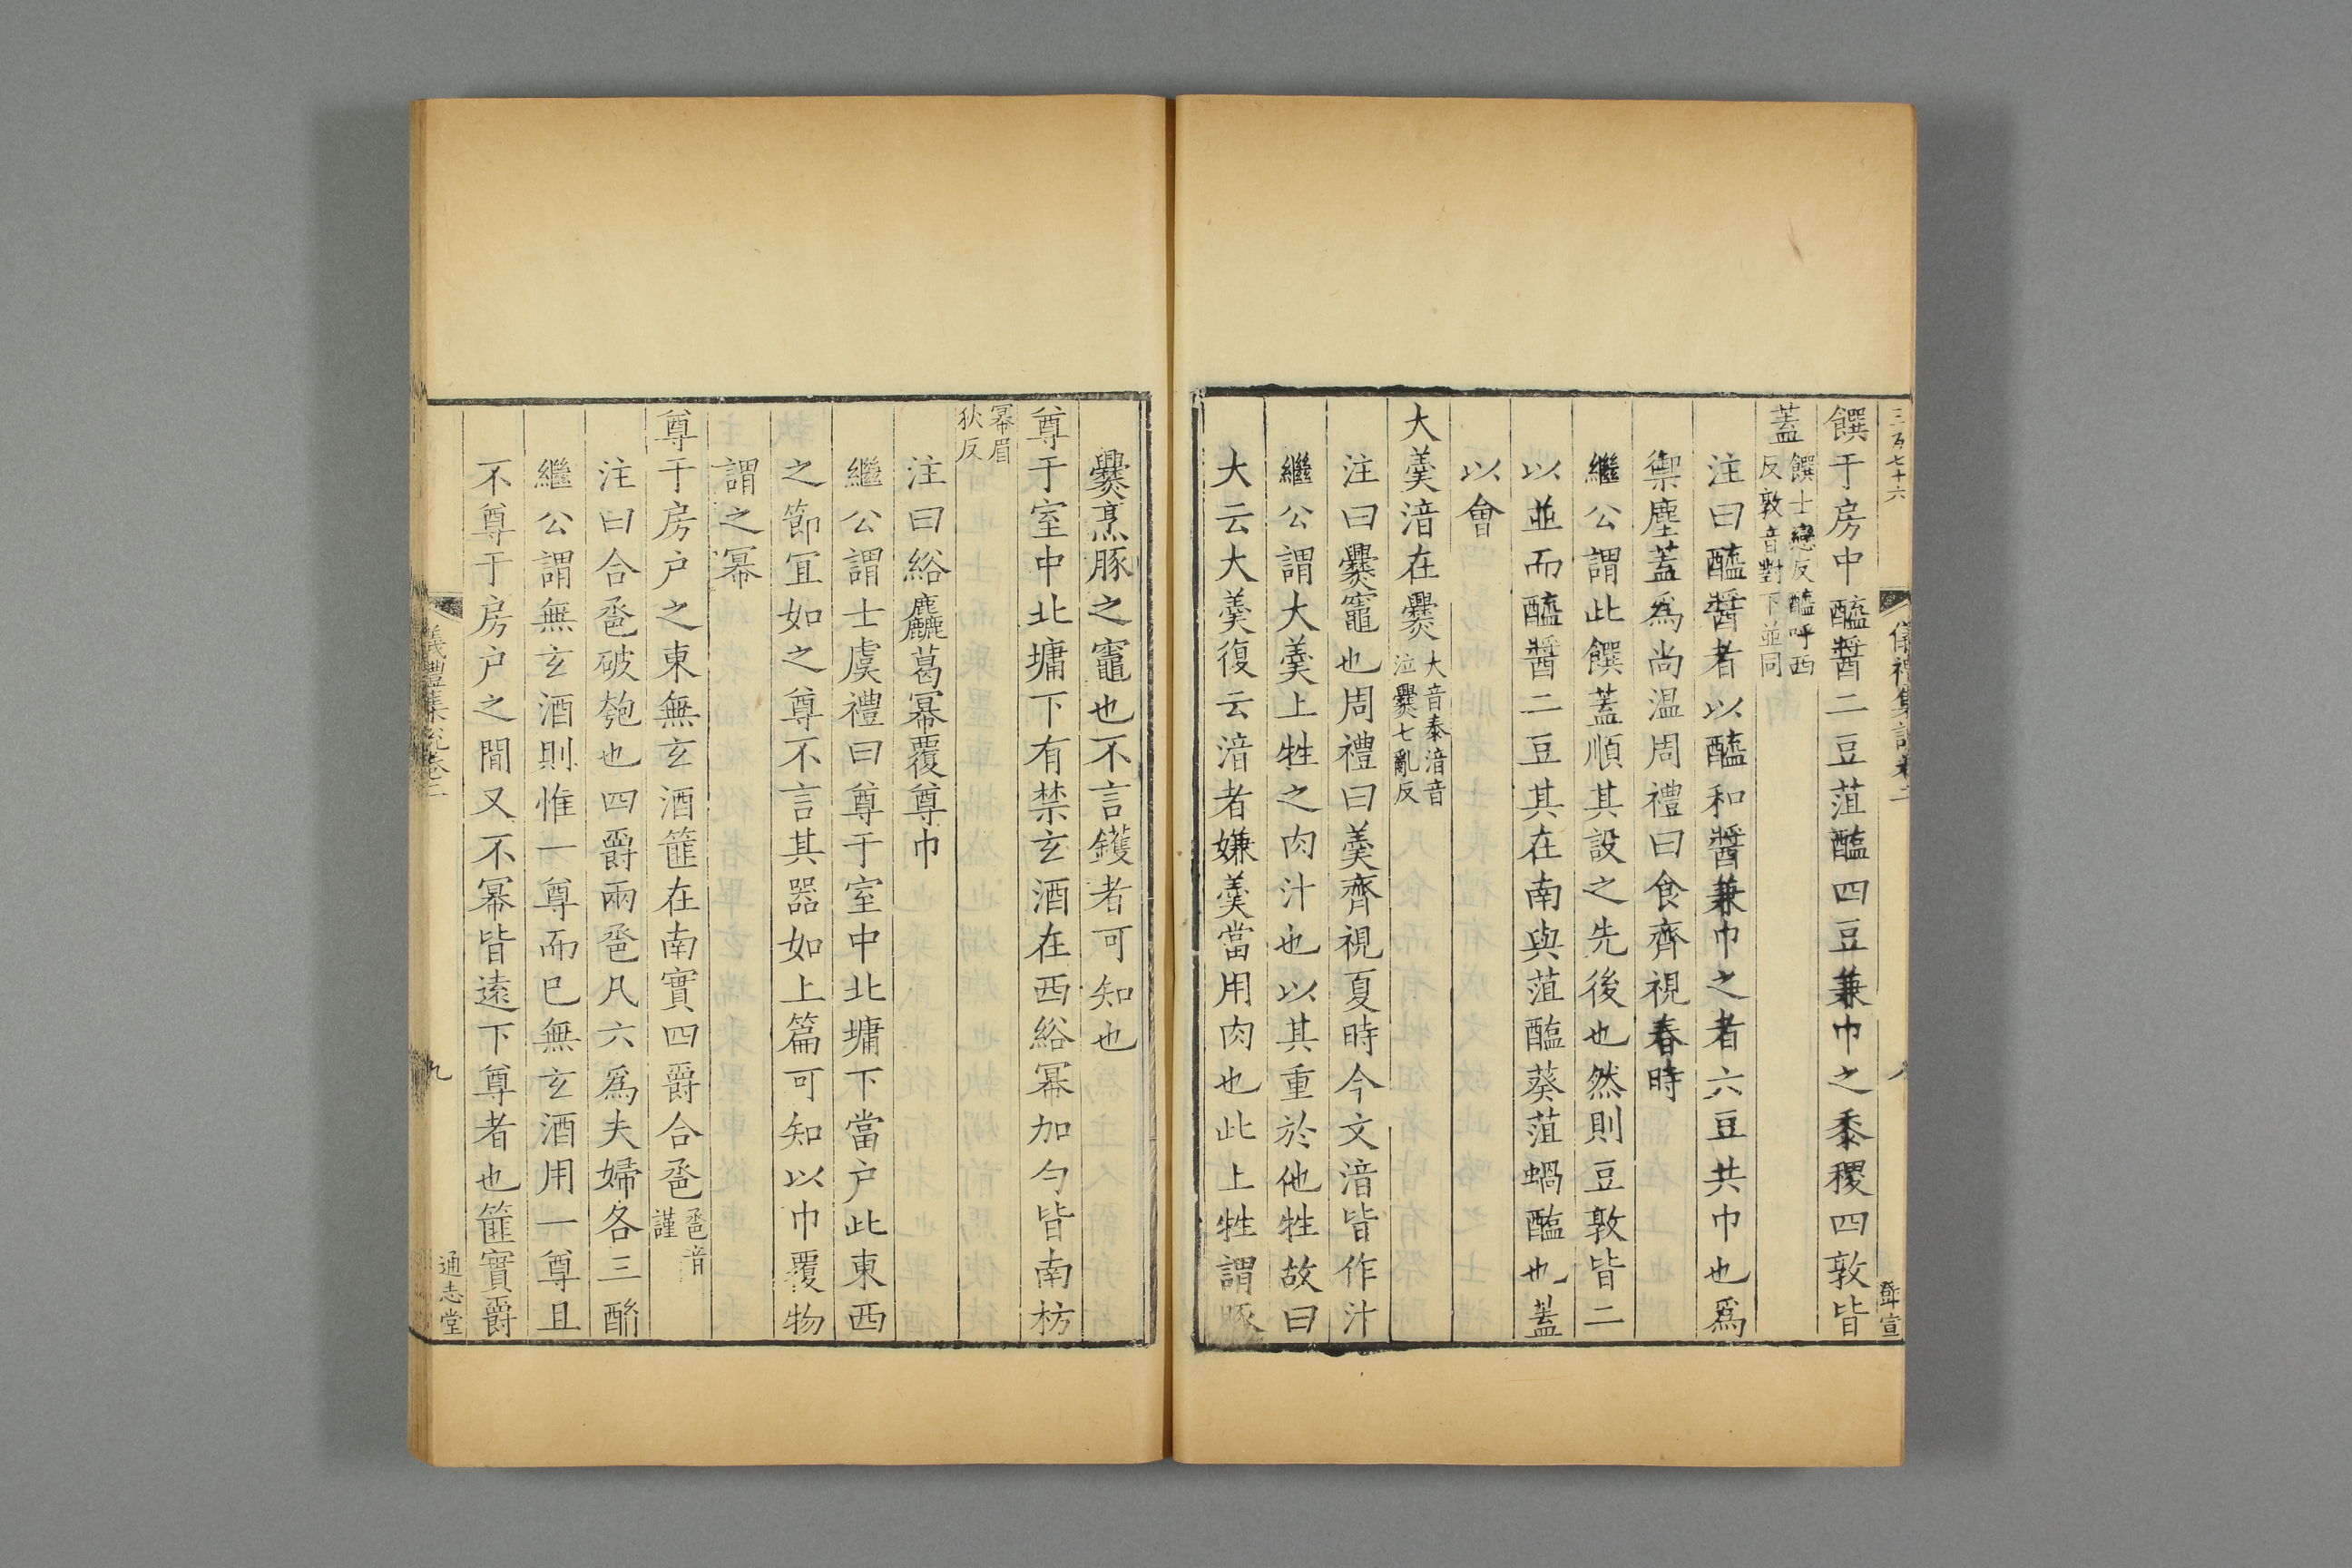 三百七十六
儀禮集說卷二
鄧宣
饌于房中醯醬二豆菹醢四豆兼巾之黍稷四敦皆
蓋饌士戀反醯呼西
反敦音對下並同
注曰醯醬者以醯和醬兼巾之者六豆共巾也爲
禦塵蓋爲尚温周禮曰食齊視春時
繼公謂此饌蓋順其設之先後也然則豆敦皆二
以並而醯醬二豆其在南與菹醢葵菹蝸醢也蓋
以會
大羮湆在爨大音泰湆音
泣爨七亂反
注曰爨竈也周禮曰羮齊視夏時今文湆皆作汁
繼公謂大羮上牲之肉汁也以其重於他牲故曰
大云大羮復云湆者嫌羮當用肉也此上牲謂豚
爨烹豚之竈也不言鑊者可知也
尊于室中北墉下有禁玄酒在西綌冪加勺皆南枋
冪眉
狄反
注曰綌麤葛冪覆尊巾
繼公謂士虞禮曰尊于室中北墉下當户此東西
之節宜如之尊不言其器如上篇可知以巾覆物
謂之冪
尊于房户之東無玄酒篚在南實四爵合巹巹音
謹
注曰合巹破匏也四爵兩巹凡六爲夫婦各三酳
繼公謂無玄酒則惟一尊而已無玄酒用一尊且
不尊于房户之間又不冪皆遠下尊者也篚實爵
儀禮集說卷二
九
通志堂